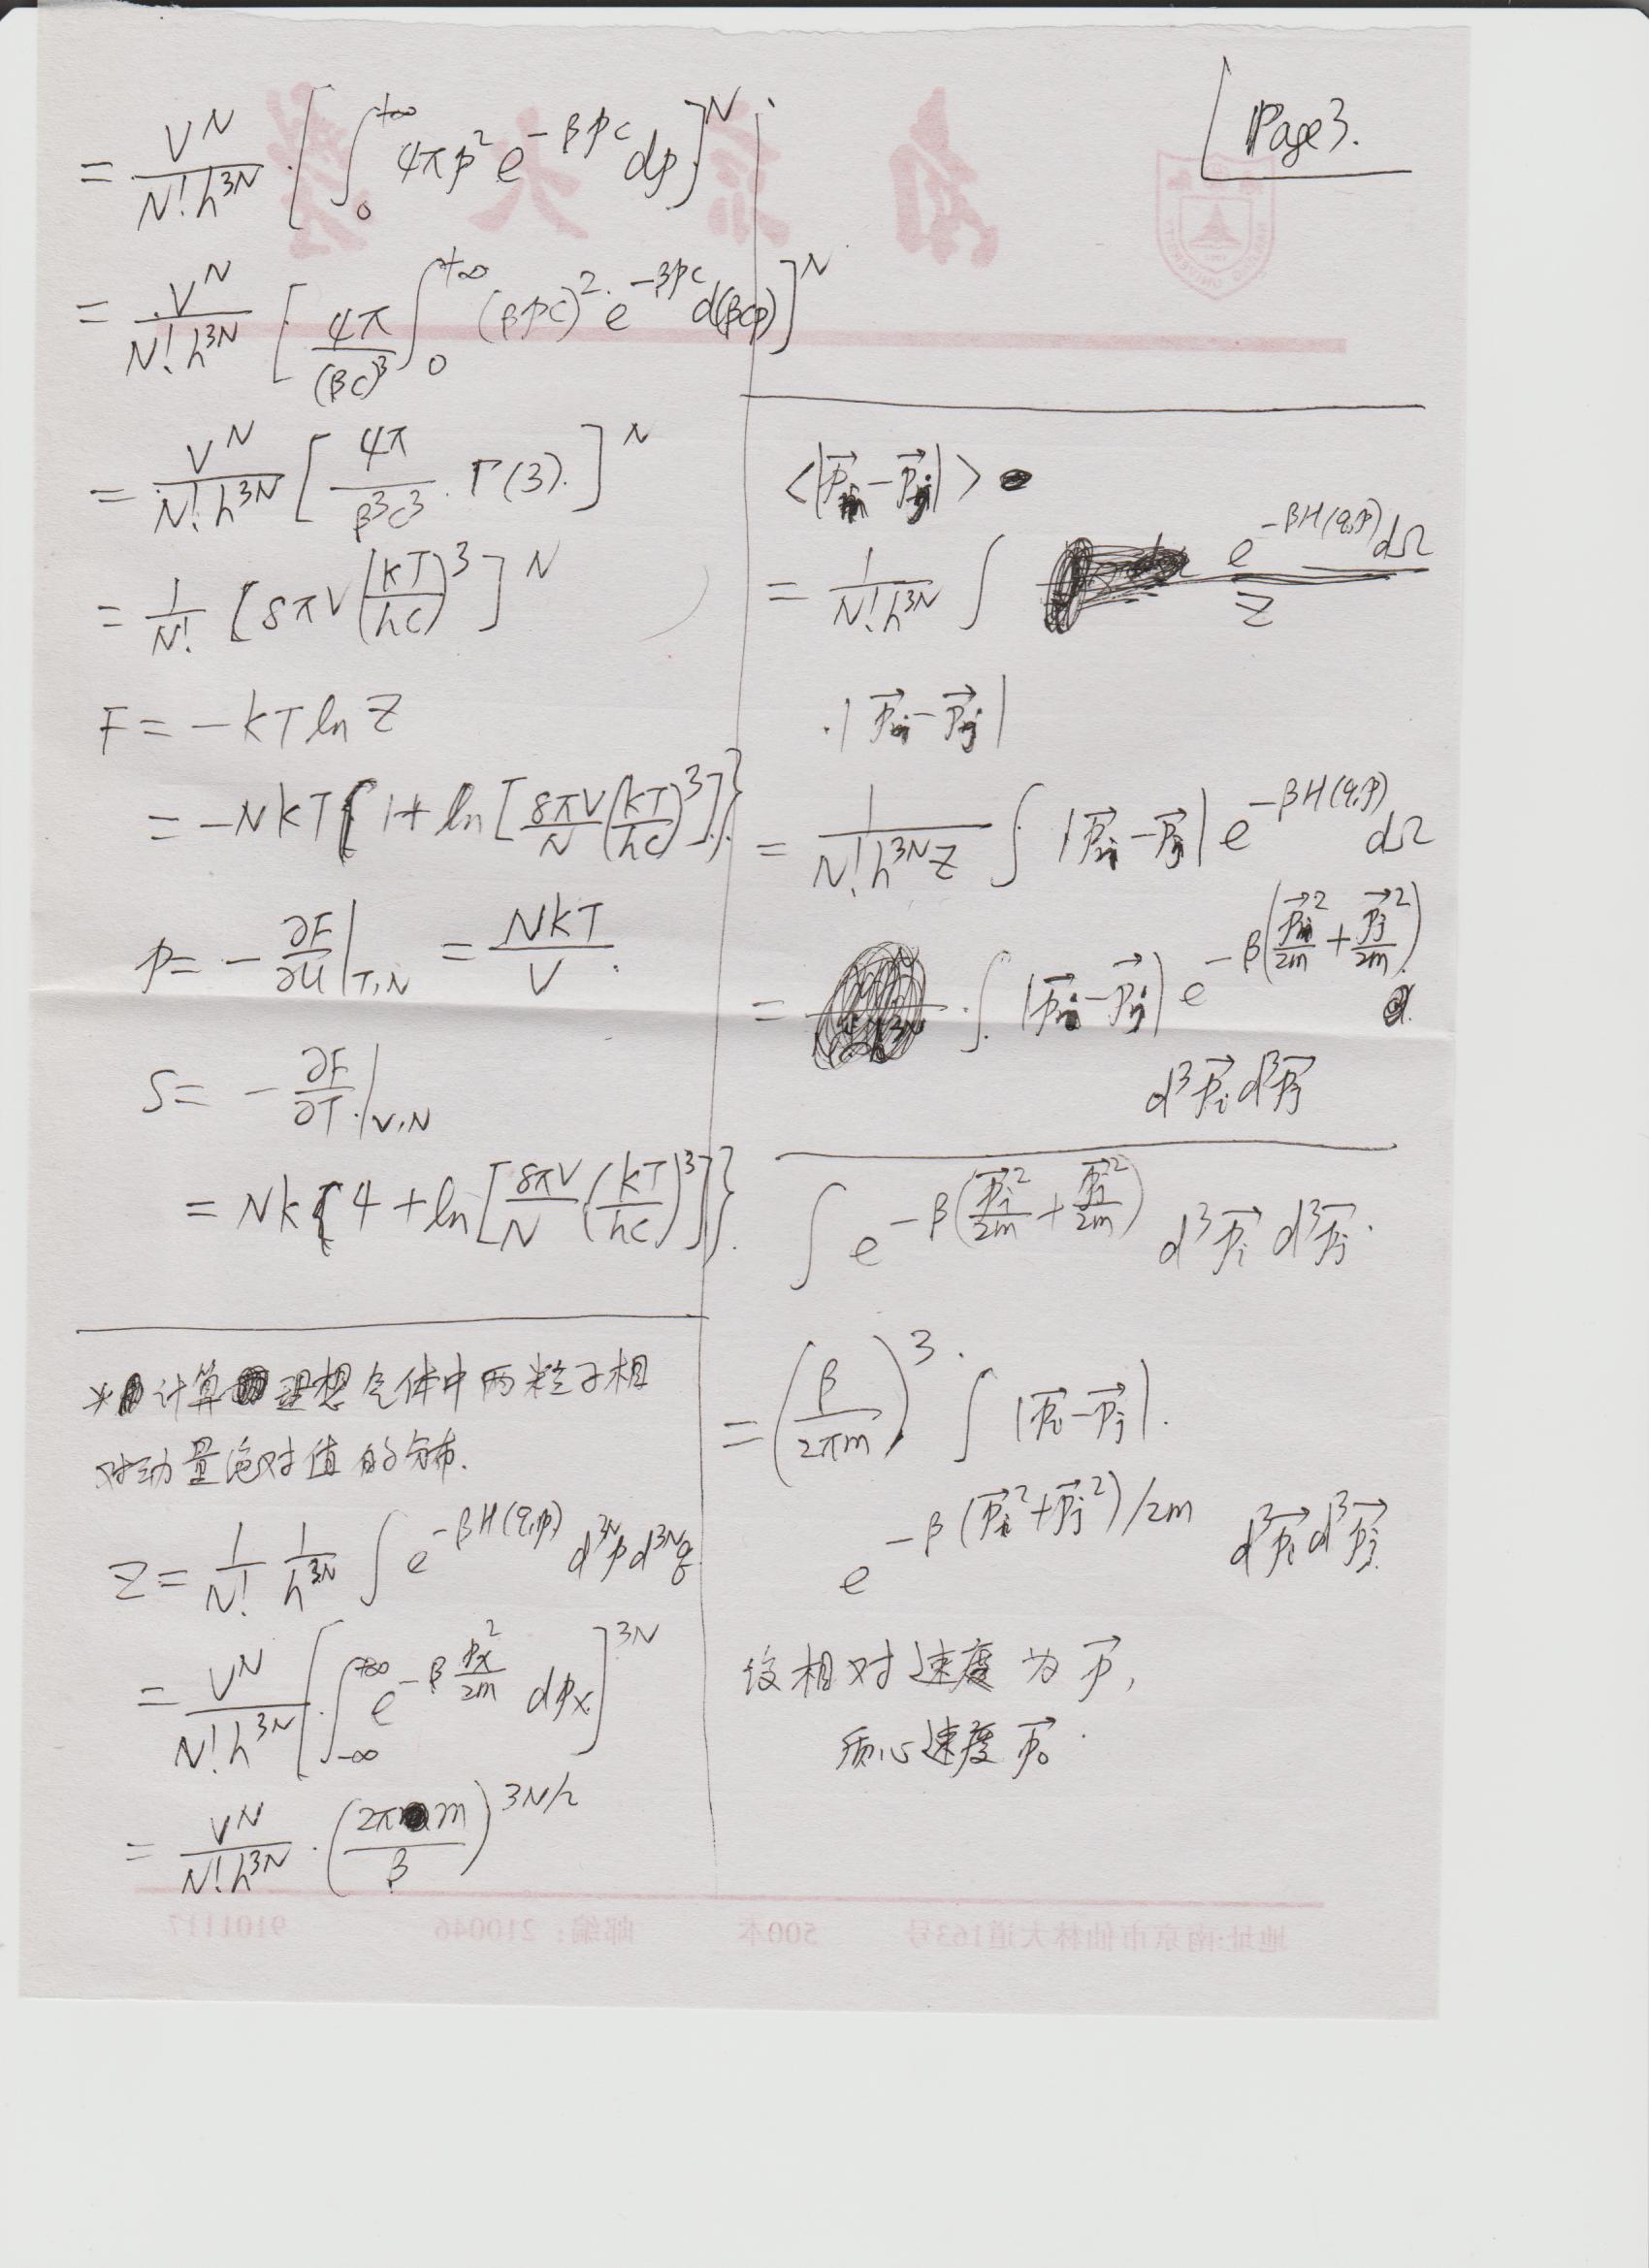 Page 3.
= \frac{V^N}{N! h^{3N}} \cdot [\int_0^{+\infty} 4\pi p^2 e^{-\beta pc} dp]^N.
= \frac{V^N}{N! h^{3N}} [\frac{4\pi}{(\beta c)^3} \int_0^{+\infty} (\beta pc)^2 \cdot e^{-\beta pc} d(\beta cp)]^N
= \frac{V^N}{N! h^{3N}} [\frac{4\pi}{\beta^3 c^3} \cdot \Gamma(3).]^N
= \frac{1}{N!} [8\pi V (\frac{kT}{hc})^3]^N
F = -kT \ln Z
= -NkT {1 + \ln [\frac{8\pi V}{N} (\frac{kT}{hc})^3]}.
p = -\frac{\partial F}{\partial V}|_{T,N} = \frac{NkT}{V}.
S = -\frac{\partial F}{\partial T}|_{V,N}
= Nk {4 + \ln [\frac{8\pi V}{N} (\frac{kT}{hc})^3]}.
* 计算理想气体中两粒子相
对动量绝对值的
Z = \frac{1}{N!} \frac{1}{h^{3N}} \int e^{-\beta H(q,p)} d^{3N}p d^{3N}q
= \frac{V^N}{N! h^{3N}} [\int_{-\infty}^{+\infty} e^{-\beta \frac{p_x^2}{2m}} dp_x]^{3N}
= \frac{V^N}{N! h^{3N}} \cdot (\frac{2\pi m}{\beta})^{3N/2}
<|\vec{p_i} - \vec{p_j}|>
= \frac{1}{N! h^{3N}} \int \frac{e^{-\beta H(q,p)} d\Omega}{Z}
\cdot |\vec{p_i} - \vec{p_j}|
= \frac{1}{N! h^{3N} Z} \int |\vec{p_i} - \vec{p_j}| e^{-\beta H(q,p)} d\Omega
= \frac{\int |\vec{p_i} - \vec{p_j}| e^{-\beta (\frac{\vec{p_i}^2}{2m} + \frac{\vec{p_j}^2}{2m})} d^3\vec{p_i} d^3\vec{p_j}}{\int e^{-\beta (\frac{\vec{p_i}^2}{2m} + \frac{\vec{p_j}^2}{2m})} d^3\vec{p_i} d^3\vec{p_j}}.
= (\frac{\beta}{2\pi m})^3 \cdot \int |\vec{p_i} - \vec{p_j}|.
e^{-\beta (\vec{p_i}^2 + \vec{p_j}^2)/2m} d^3\vec{p_i} d^3\vec{p_j}
设相对速度为 \vec{p},
质心速度 \vec{p}_0.